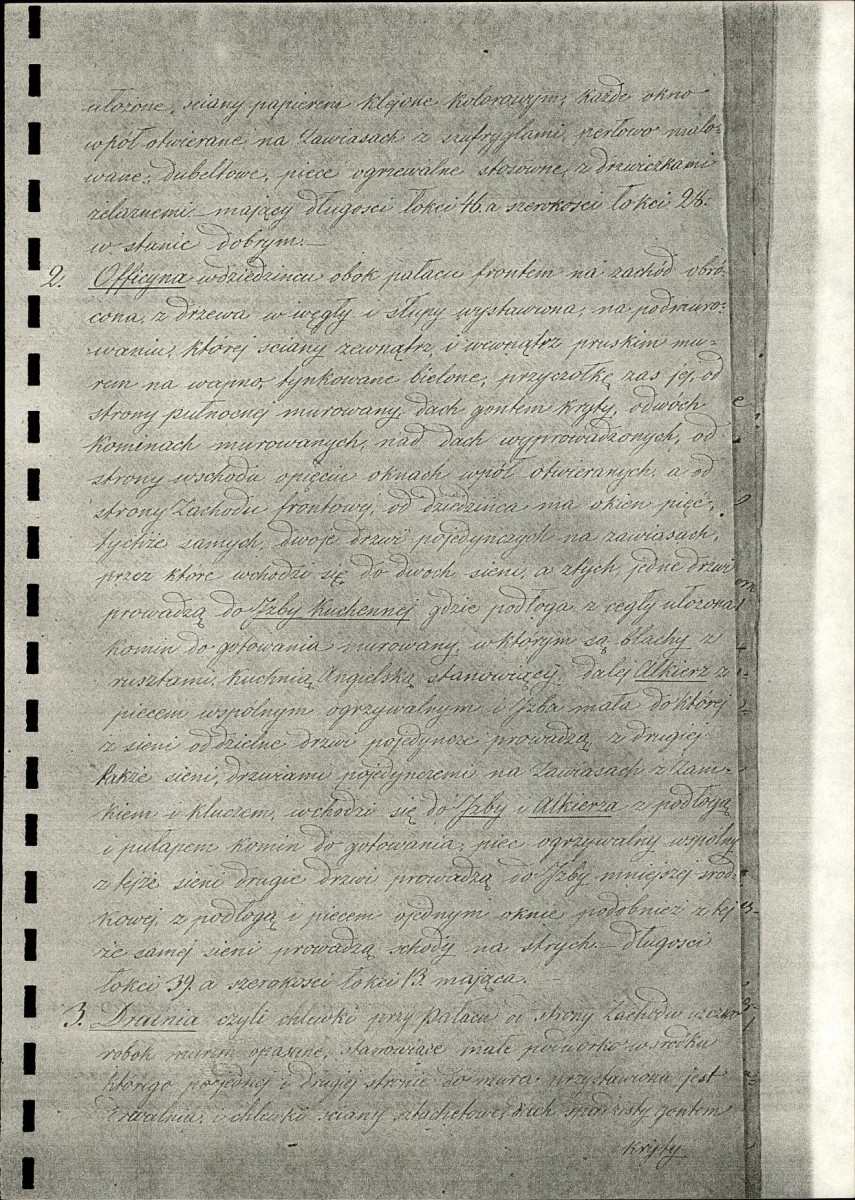 ułożone, sciany papierem klejone kolorowym, każde okno
wpół otwierane, na Zawiasach z szufryglami, perłowo malo-
wane, dubeltowe, piece ogrzewalne stosowne, z drzwiczkami
żelaznemi – mający długosci łokci 46. a szerokosci łokci 28.
w stanie dobrym. –
2. Officyna wdziedzincu obok pałacu frontem na zachód obró-
cona, z drzewa w węgły i słupy wystawiona, na podmuro-
waniu, której sciany zewnątrz, i wewnątrz pruskim mu-
rem na wapno, tynkowane bielone, przyczółkę zas jej, od
strony pułnocnej murowany, dach gontem kryty, odwóch
Kominach murowanych, nad dach wyprowadzonych, od
strony wschodu opięciu oknach wpół otwieranych, a od
strony Zachodu frontowej, od dziedzińca ma okien pięć,
tychże samych, dwoje drzwi pojedynczych na zawiasach,
przez które wchodzi się do dwoch sieni, a ztych jedne drzwi
prowadzą do Jzby Kuchennej gdzie podłoga z cegły ułożona
Komin do gotowania murowany, w którym są blachy z
rusztami, Kuchnią Angielską stanowiącej, dalej Alkierz z
piecem wspolnym ogrzywalnym i Jzba mała do której
z sieni oddzielne drzwi pojedyncze prowadzą, z drugiej
także sieni, drzwiami pojedynczemi na Zawiasach z Zam-
kiem i kluczem, wchodzi się do Jzby i Alkierza z podłogą
i pułapem Komin do gotowania, piec ogrzywalny wspólny
z tejże sieni drugie drzwi prowadzą do Jzby mniejszej srod-
kowej, z podłogą i piecem ojednym oknie podobnież z tej
że samej sieni prowadzą schody na strych. – długosci
łokci 39. a szerokosci łokci 13. mająca. –
3. Drwalnia czyli chlewki przy Pałacu od strony Zachodu wczwo
robok murem opasane, stanowiące małe podworko wsrodku
którego pojednej i drugiej stronie do muru przystawiona jest
drwalnia, i chlewki sciany sztachetowe, dach gontem
Kryty